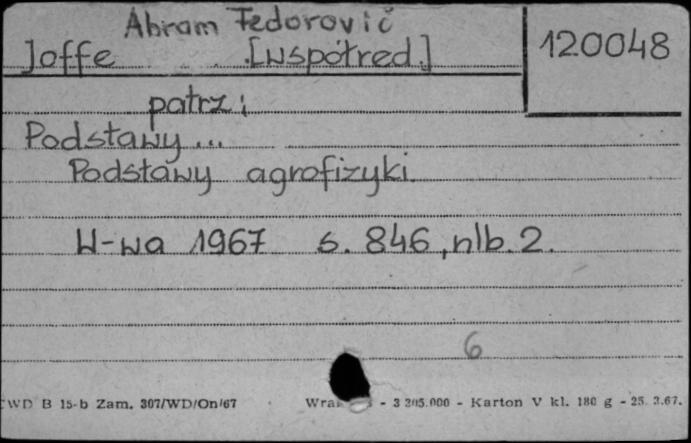 Abram Fedorovič
Joffe [współred.]
120048
patrz:
Podstawy...
Podstawy agrofizyki.
W-wa 1967 s. 846, nlb. 2.
6
WD B 15-b Zam. 307/WD/On/67 - 3 205.000 - Karton V kl. 180 g - 25. 3.67.